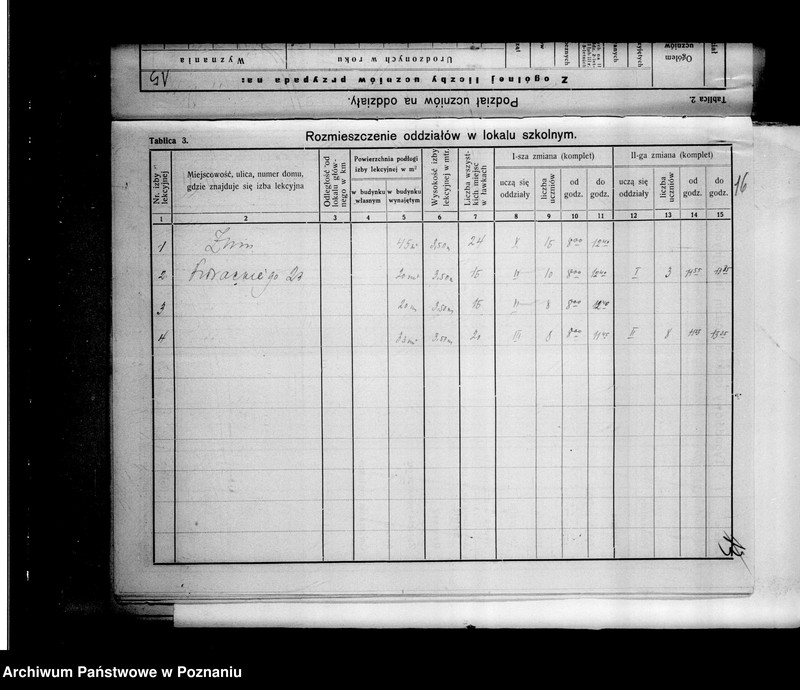 Z ogólnej liczby uczniów przypada na:
15
Urodzonych w roku
Wyznania
Ogółem uczniów
Tablica 2.
Podział uczniów na oddziały.
Tablica 3.
Rozmieszczenie oddziałów w lokalu szkolnym.
Nr. izby lekcyjnej
Miejscowość, ulica, numer domu,
gdzie znajduje się izba lekcyjna
Odległość od lokalu głównego w km
Powierzchnia podłogi
izby lekcyjnej w m²
w budynku własnym
w budynku wynajętym
Wysokość izby lekcyjnej w mtr.
Liczba wszystkich miejsc w ławkach
I-sza zmiana (komplet)
uczą się oddziały
liczba uczniów
od godz.
do godz.
II-ga zmiana (komplet)
uczą się oddziały
liczba uczniów
od godz.
do godz.
16
1 2 3 4 5 6 7 8 9 10 11 12 13 14 15
1 Żnin 3.50m 24 V 15 8⁰⁰ 12⁴⁰
2 20m² 3.50m 15 IV 10 8⁰⁰ 12⁴⁰ I 3
3 20m 3.50m 15 8 8⁰⁰ 12⁴⁰
4 3.50m 20 III 8 8⁰⁰ 11⁴⁵ II 8
Archiwum Państwowe w Poznaniu